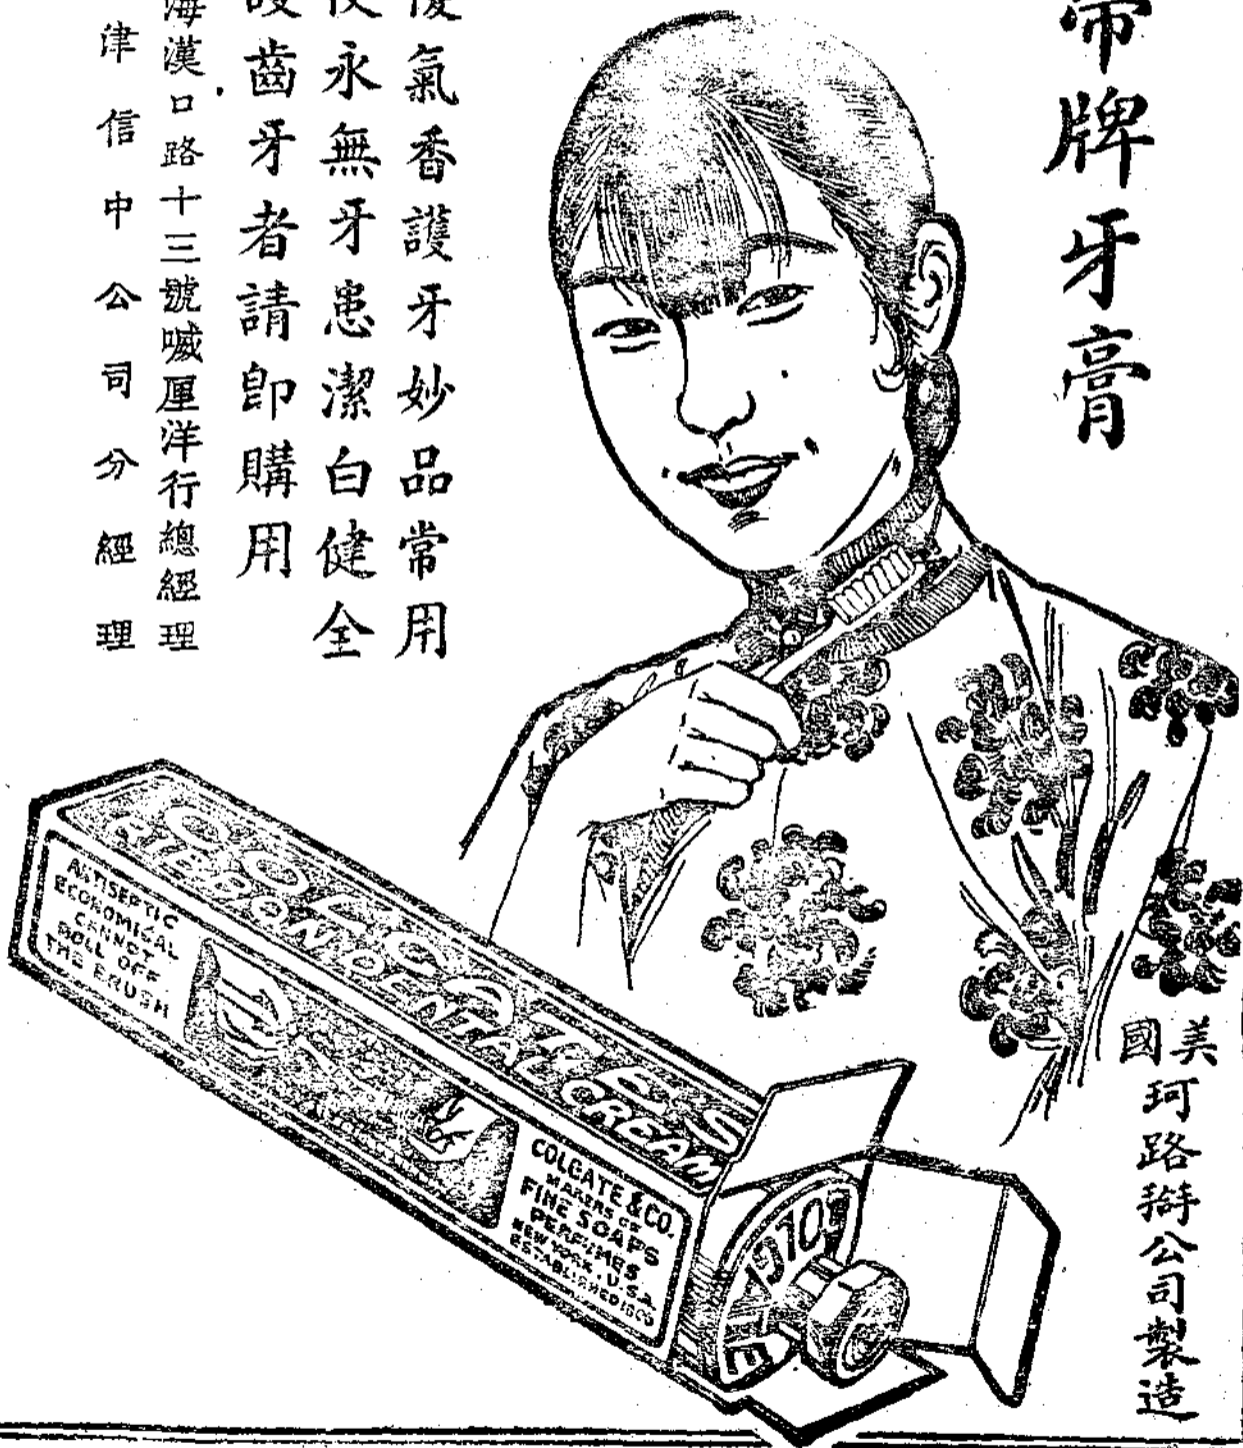 帶牌牙膏
氣香護牙妙品常用
永無牙患潔白健全
齒牙者請卽購用
海漢口路十三號喊厘洋行總經理
津信中公司分經理
COLGATE'S
RIBBON DENTAL CREAM
ANTISEPTIC
ECONOMICAL
CANNOT
ROLL OFF
THE BRUSH
COLGATE & CO.
MAKERS OF
FINE SOAPS
PERFUMES
NEW YORK. U.S.A.
ESTABLISHED 1806
美國珂路搿公司製造